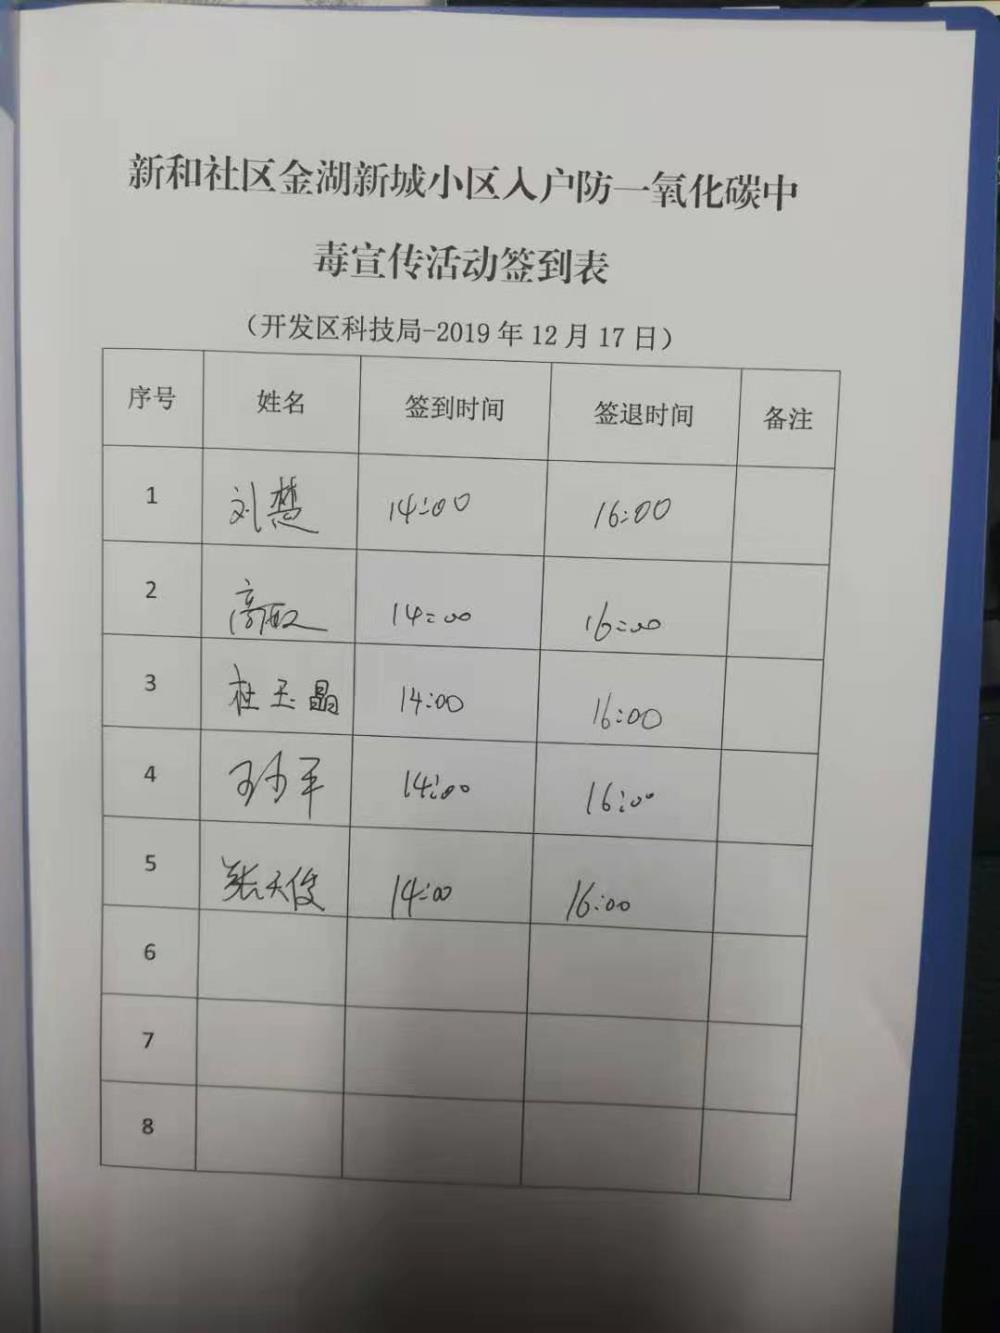 新和社区金湖新城小区入户防一氧化碳中
毒宣传活动签到表
（开发区科技局-2019年12月17日）
序号 姓名 签到时间 签退时间 备注
1 刘慧 14:00 16:00
2 14:00 16:00
3 杜玉晶 14:00 16:00
4 14:00 16:00
5 张天俊 14:00 16:00
6
7
8